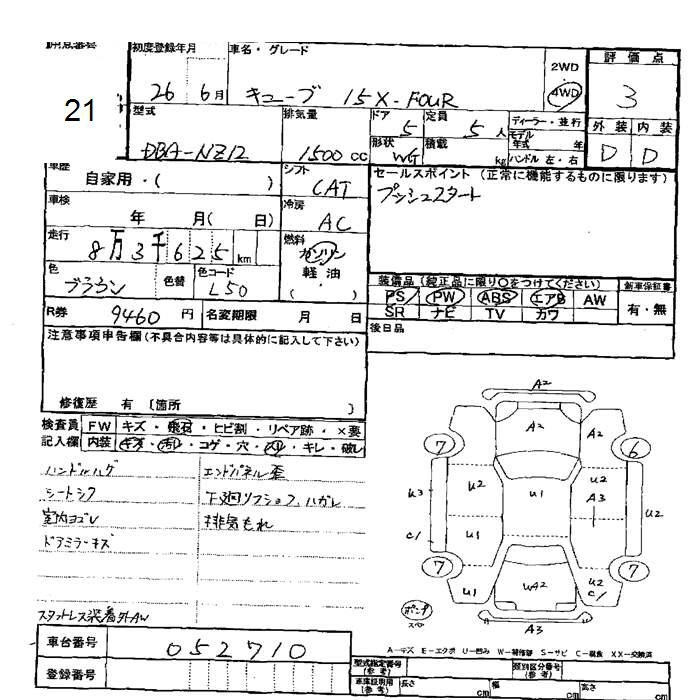 初度登録年月 車名・グレード 2WD 評価点
26 6月 キューブ 15X-FOUR 4WD 3
21
型式 排気量 ドア 定員 ディーラー・並行 外装 内装
DBA-NZ12 1500cc 5 5人 モデル年式 年 D D
形状 積載 kg ハンドル 左・右
WG
車歴 シフト セールスポイント (正常に機能するものに限ります)
自家用・( ) CAT プッシュスタート
車検 冷房
年 月( 日) AC
走行 燃料
8万3千625km ガソリン
色 色替 色コード 軽油
ブラウン L50 ( )
装備品(純正品に限り○をつけてください) 新車保証書
PS PW ABS エアB AW 有・無
SR ナビ TV カワ
R券 9460円 名変期限 月 日 後日品
注意事項申告欄(不具合内容等は具体的に記入して下さい)
修復歴 有 〔箇所 〕
検査員 FW キズ・飛石・ヒビ割・リペア跡・×要
記入欄 内装 キズ・汚れ・コゲ・穴・スリ・キレ・破レ
ハンドルハゲ エンドパネル歪
シートシワ 下廻リフショク、ハガレ
室内ヨゴレ 排気もれ
ドアミラーキズ
スタットレス装着外AW
A2
A2 A2
7 6
U2 U2
U3 U1 A3 U2
C/ U1
7 7
U1 WA2 U2
C/
ポンプ
スペ
A3
A-キズ E-エクボ U-凹み W-補修跡 S-サビ C-腐食 XX-交換済
車台番号 052710
登録番号
型式指定番号(参考) 類別区分番号(参考)
車庫証明用(参考) 長さ cm 幅 cm 高さ cm